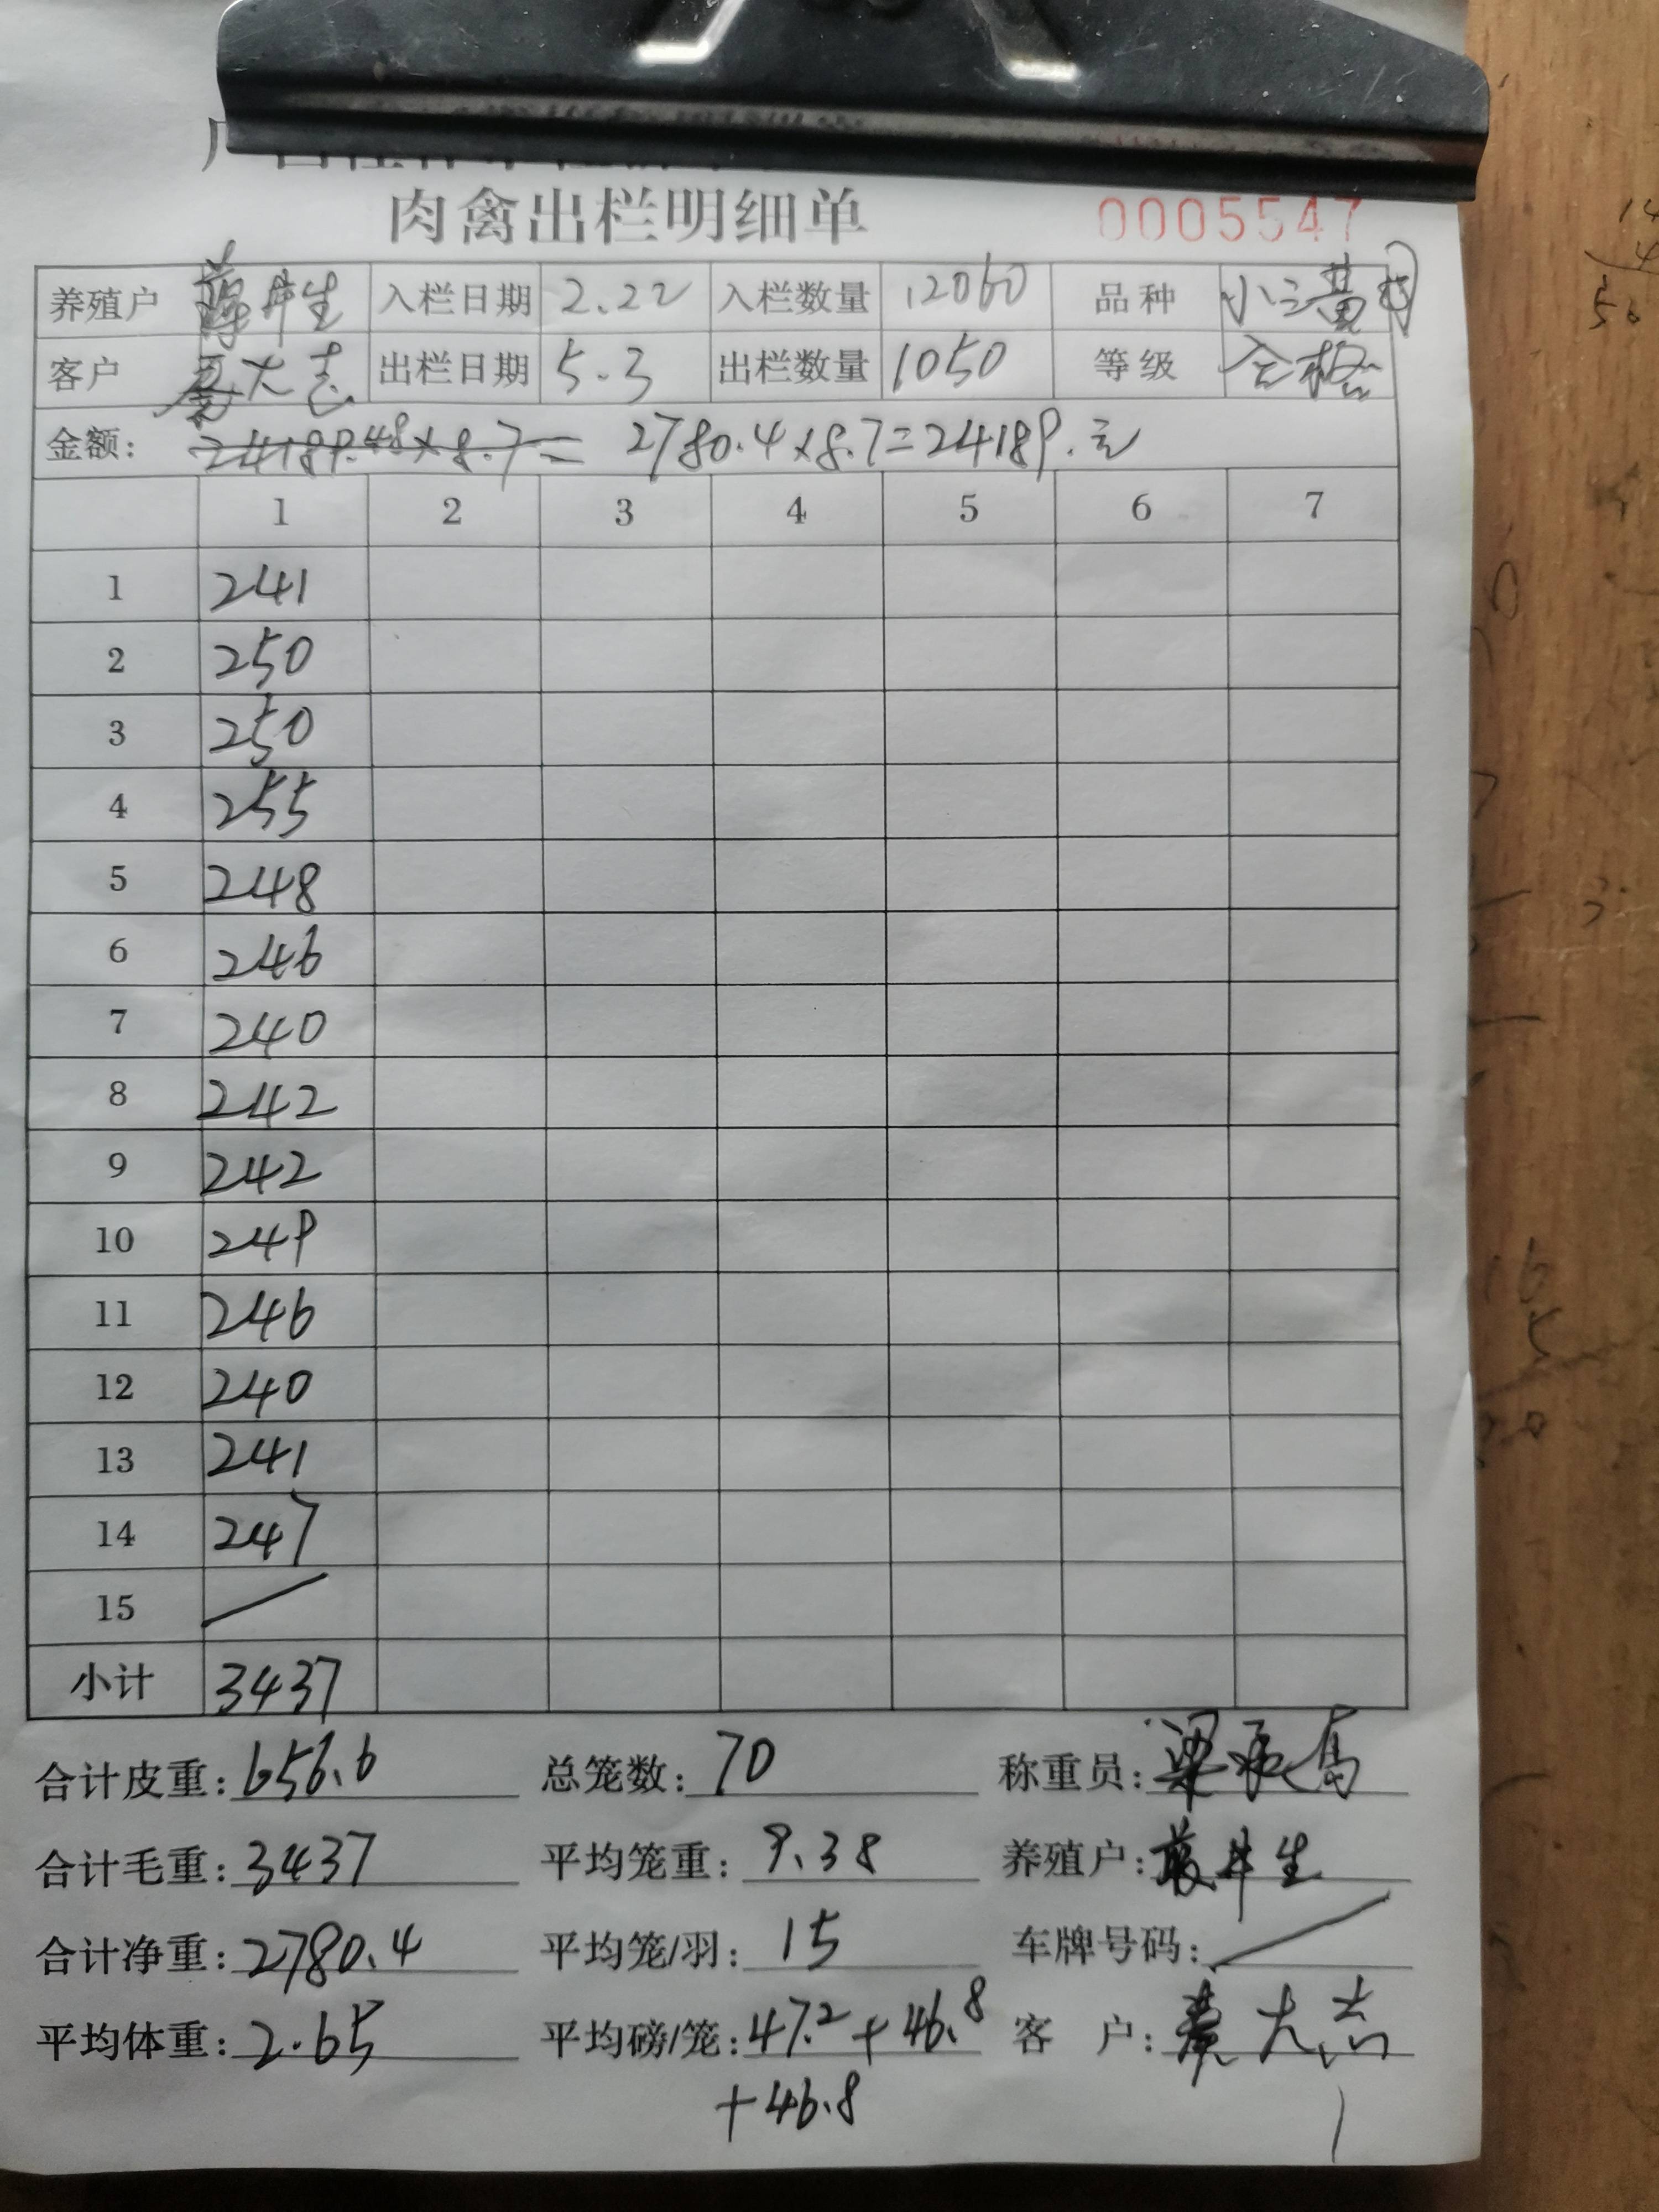 肉禽出栏明细单 0005547
养殖户 井生 入栏日期 2.22 入栏数量 12060 品种 小三黄
客户 秦大志 出栏日期 5.3 出栏数量 1050 等级 合格
金额: 24189.48×8.7= 2780.4×8.7=24189.元
1 2 3 4 5 6 7
1 241
2 250
3 250
4 255
5 248
6 246
7 240
8 242
9 242
10 249
11 246
12 240
13 241
14 247
15 /
小计 3437
合计皮重: 656.6 总笼数: 70 称重员: 梁
合计毛重: 3437 平均笼重: 9.38 养殖户: 井生
合计净重: 2780.4 平均笼/羽: 15 车牌号码: /
平均体重: 2.65 平均磅/笼: 47.2+46.8 客 户: 秦大志
+46.8